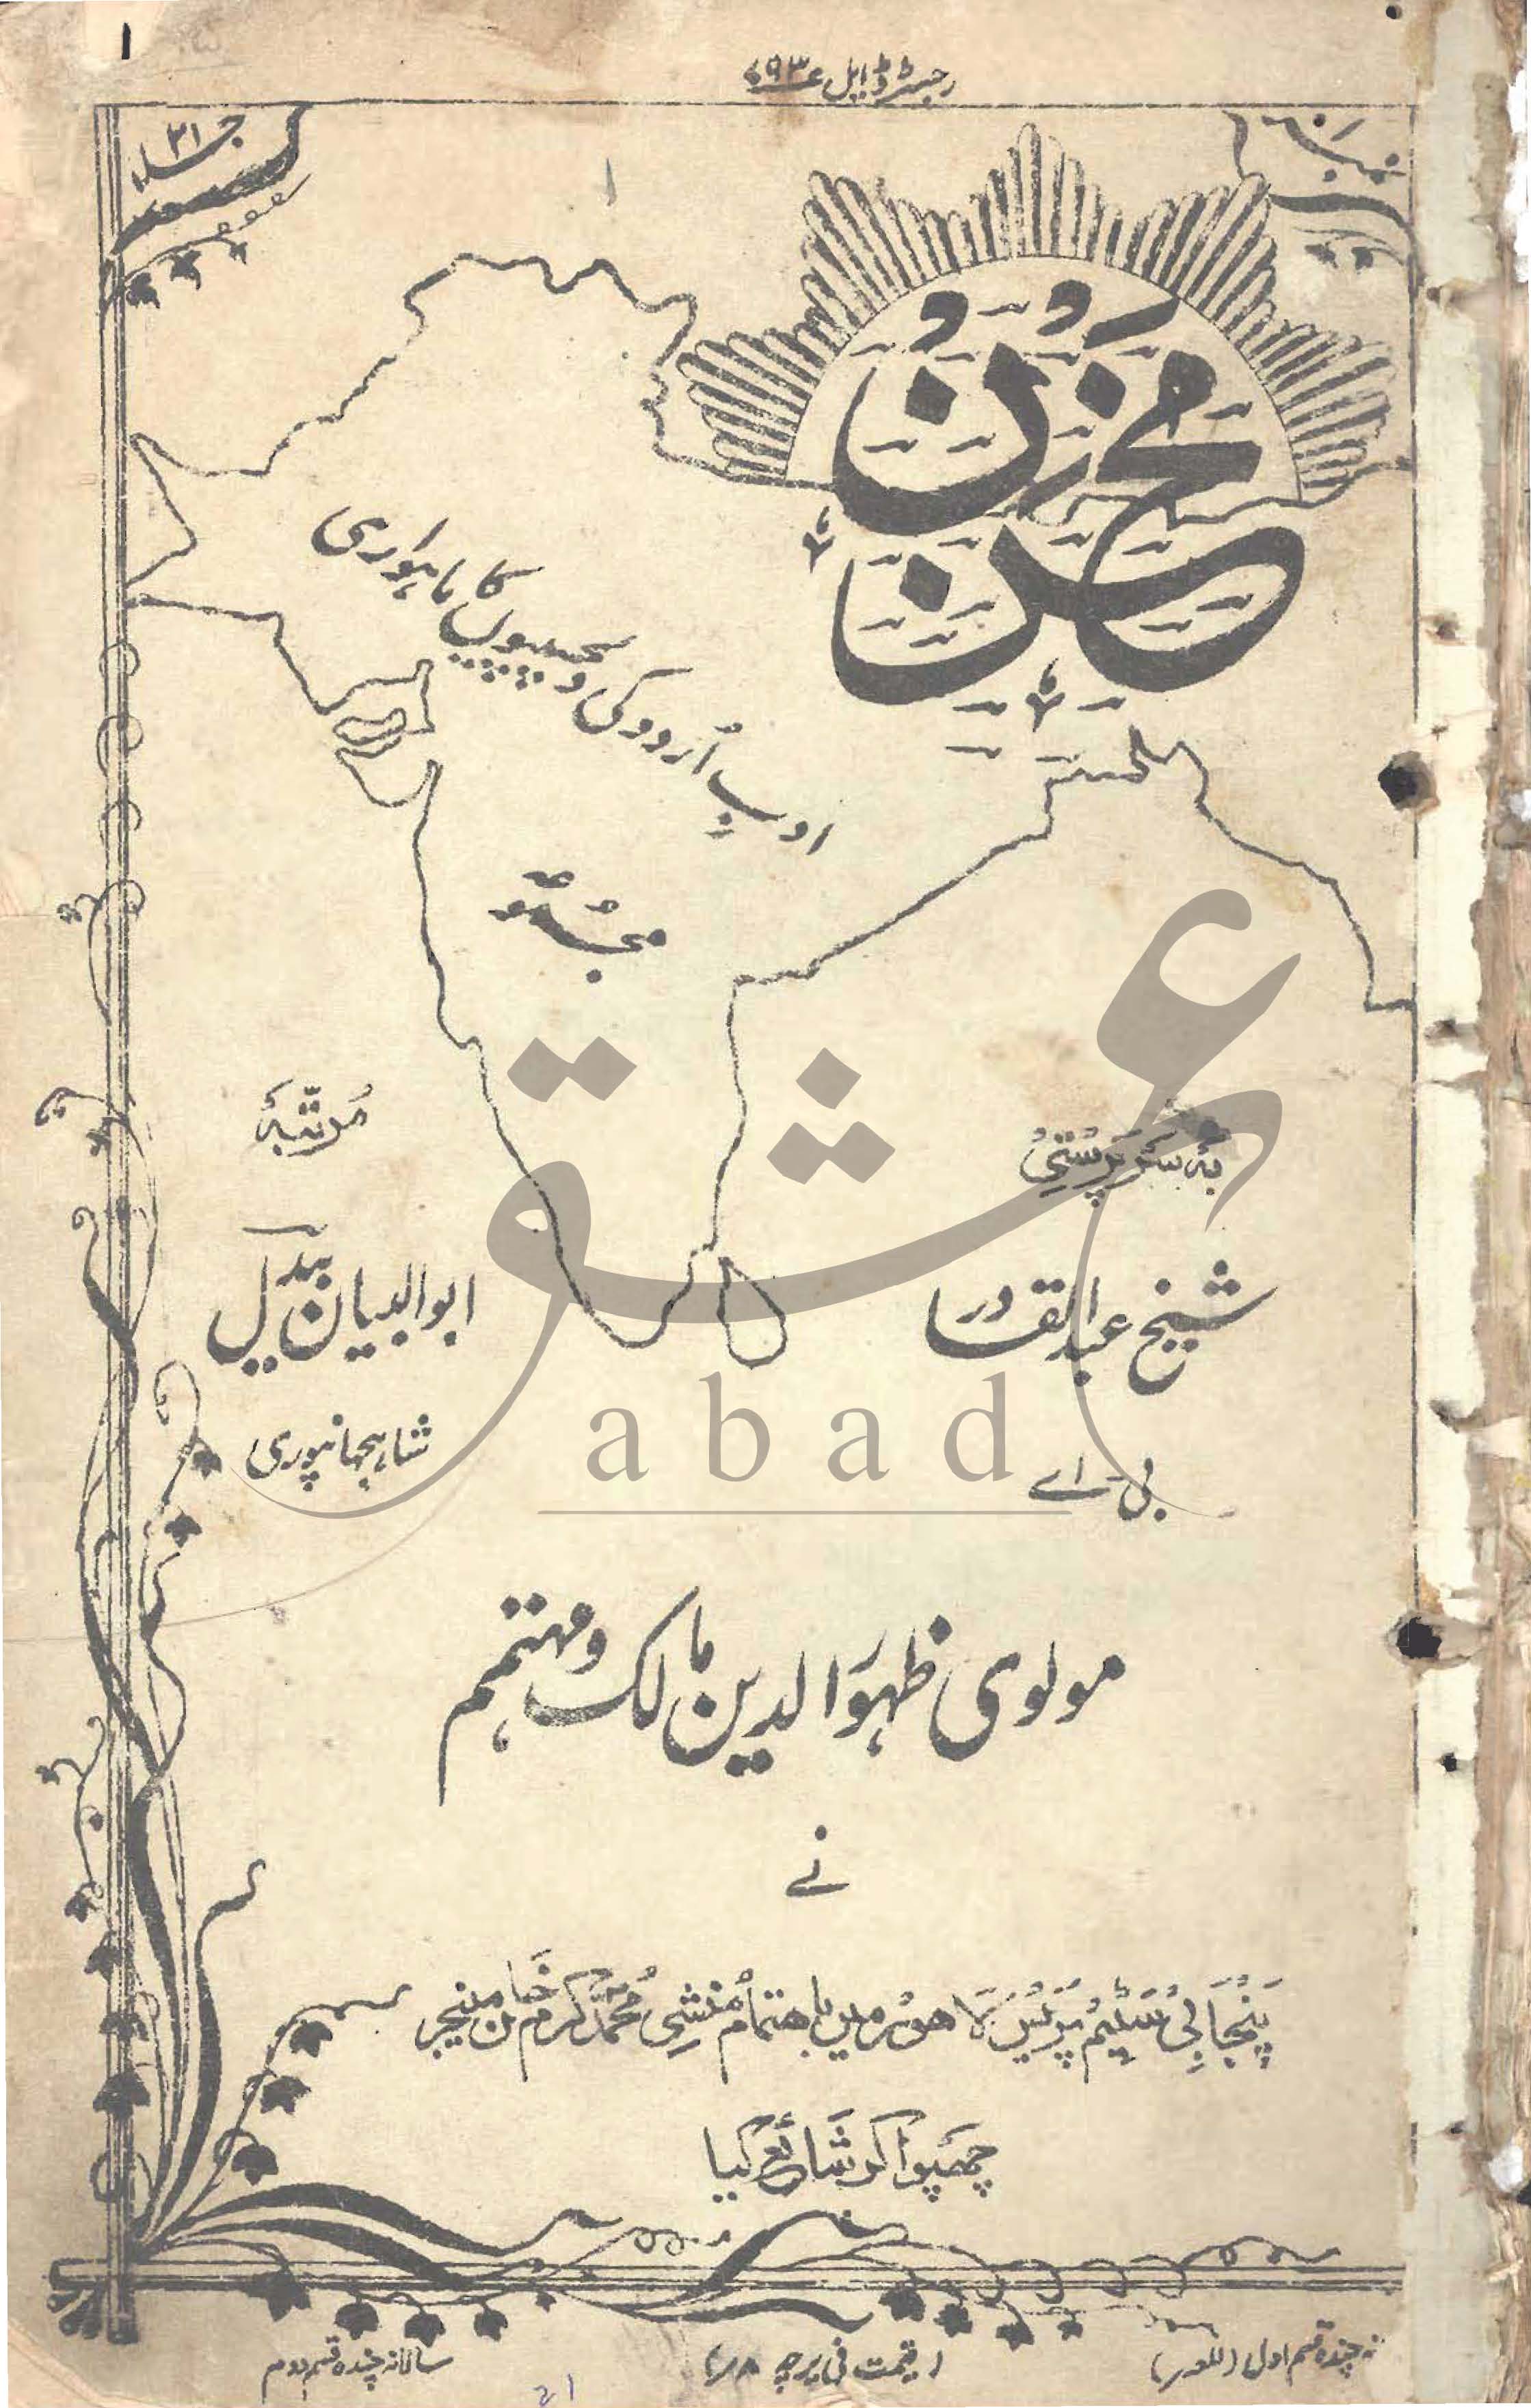 ۱
رجسٹرڈ ایل ۶۹۳
جلد ۳۱
نمبر
مخزن
ادبِ اُردو کی دلچسپیوں کا ماہواری
مجموعہ
بہ سرپرستی
شیخ عبدالقادر
بی۔ اے
مرتّبہٗ
ابوالبیان بیدل
شاہجہانپوری
عشق
abad
مولوی ظہور الدین مالک و مہتمم
نے
پنجابی سٹیم پریس لاہور میں باہتمام منشی محمد کرم خان منیجر
چھپوا کر شائع کیا
چندہ قسم اول
قیمت فی پرچہ ۸
سالانہ چندہ قسم دوم